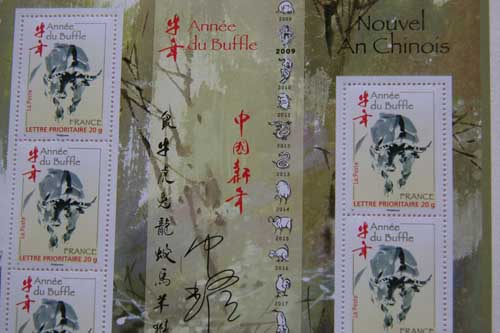 牛年
Année
du Buffle
La Poste
FRANCE
LETTRE PRIORITAIRE 20 g
牛年
Année
du Buffle
La Poste
FRANCE
LETTRE PRIORITAIRE 20 g
牛年
Année
du Buffle
牛年
Année
du Buffle
鼠牛虎兔龍蛇馬羊猴
中国新年
2009
2009
2010
2011
2012
2013
2014
2015
2016
2017
Nouvel
An Chinois
牛年
Année
du Buffle
La Poste
FRANCE
LETTRE PRIORITAIRE 20 g
牛年
Année
du Buffle
La Poste
FRANCE
LETTRE PRIORITAIRE 20 g
牛年
Année
du Buffle